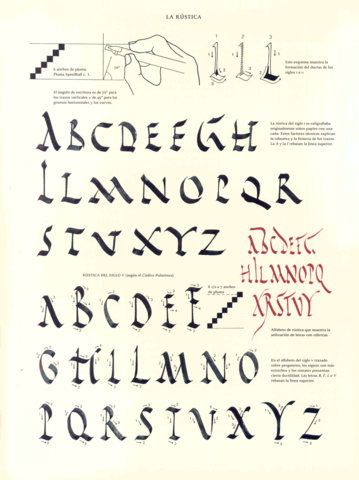 LA RÚSTICA
6 anchos de pluma
Pluma Speedball c. 2
70°
1 2 3
Este esquema muestra la
formación del ductus de los
siglos I a V
El ángulo de escritura es de 70° para
los trazos verticales y de 45° para los
gruesos horizontales y los curvos.
ABCDEFGH
La rústica del siglo I se caligrafiaba
originalmente sobre papiro con una
caña. Estos factores técnicos explican
la robustez y la firmeza de los trazos.
La F y la I rebasan la línea superior.
ILMNOPQR
STUVXYZ
ABCDEFG
HILMNOPQ
XRSTVY
RÚSTICA DEL SIGLO V (según el Codice Palatinus)
6 1/2 a 7 anchos
de pluma
ABCDEF
Alfabeto de rústica que muestra la
utilización de letras con rúbricas
GHILMNO
En el alfabeto del siglo V trazado
sobre pergamino, los signos son más
estrechos y los remates presentan
cierta ductilidad. Las letras B, F, L e Y
rebasan la línea superior.
PQRSTUXYZ